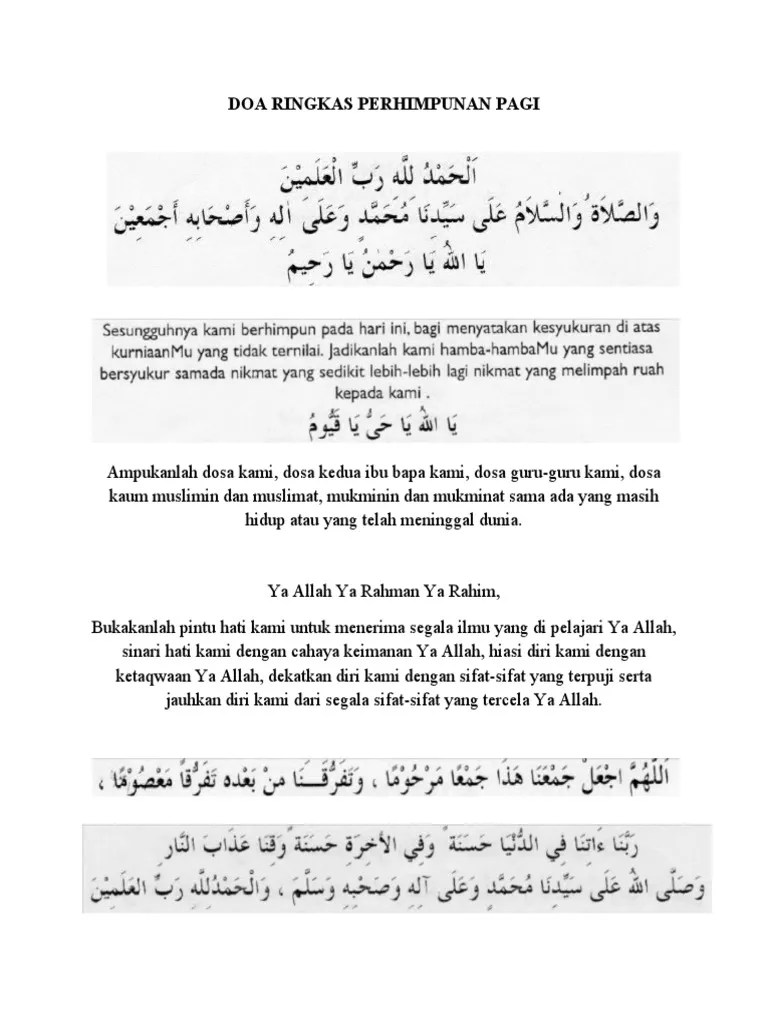 DOA RINGKAS PERHIMPUNAN PAGI
اَلْحَمْدُ لِلَّهِ رَبِّ الْعَلَمِيْنَ
وَالصَّلَاةُ وَالسَّلَامُ عَلَى سَيِّدِنَا مُحَمَّدٍ وَعَلَى اٰلِهِ وَأَصْحَابِهِ أَجْمَعِيْنَ
يَا اللهُ يَا رَحْمٰنُ يَا رَحِيمُ
Sesungguhnya kami berhimpun pada hari ini, bagi menyatakan kesyukuran di atas
kurniaanMu yang tidak ternilai. Jadikanlah kami hamba-hambaMu yang sentiasa
bersyukur samada nikmat yang sedikit lebih-lebih lagi nikmat yang melimpah ruah
kepada kami .
يَا اللهُ يَا حَيُّ يَا قَيُّومُ
Ampukanlah dosa kami, dosa kedua ibu bapa kami, dosa guru-guru kami, dosa
kaum muslimin dan muslimat, mukminin dan mukminat sama ada yang masih
hidup atau yang telah meninggal dunia.
Ya Allah Ya Rahman Ya Rahim,
Bukakanlah pintu hati kami untuk menerima segala ilmu yang di pelajari Ya Allah,
sinari hati kami dengan cahaya keimanan Ya Allah, hiasi diri kami dengan
ketaqwaan Ya Allah, dekatkan diri kami dengan sifat-sifat yang terpuji serta
jauhkan diri kami dari segala sifat-sifat yang tercela Ya Allah.
اَللّٰهُمَّ اجْعَلْ جَمْعَنَا هَذَا جَمْعًا مَرْحُوْمًا ، وَتَفَرُّقَنَا مِنْ بَعْدِهِ تَفَرُّقًا مَعْصُوْمًا ،
رَبَّنَا ءَاتِنَا فِي الدُّنْيَا حَسَنَةً وَفِي الْأَخِرَةِ حَسَنَةً وَقِنَا عَذَابَ النَّارِ
وَصَلَّى اللهُ عَلَى سَيِّدِنَا مُحَمَّدٍ وَعَلَى آلِهِ وَصَحْبِهِ وَسَلَّمَ ، وَالْحَمْدُ لِلَّهِ رَبِّ الْعَلَمِيْنَ